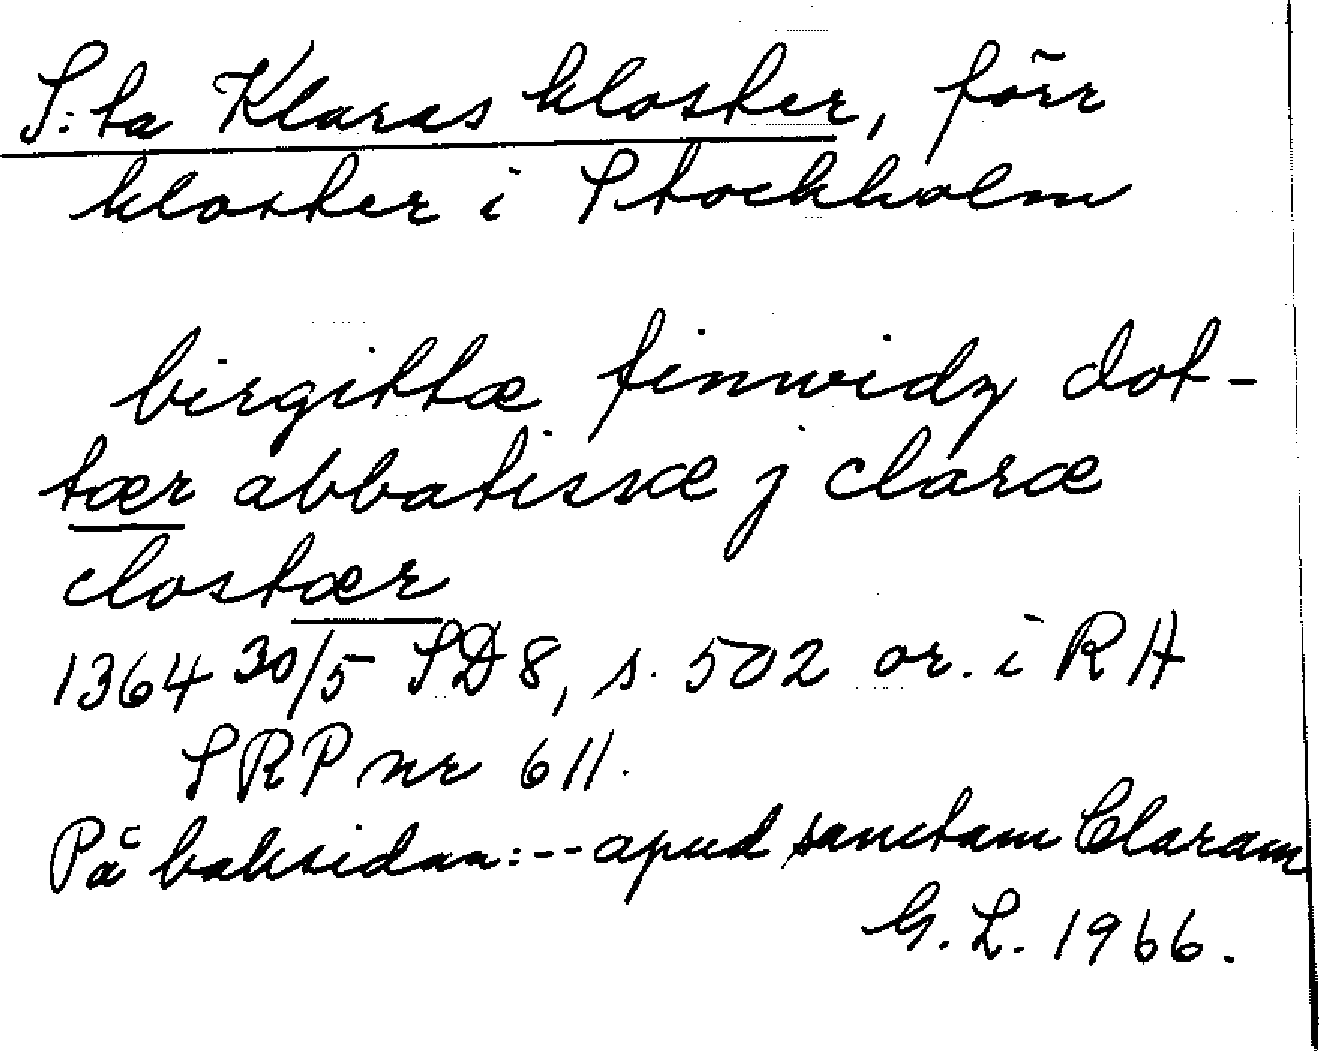 S:ta Klaras kloster, förr
kloster i Stockholm
birgittæ finwidz dot-
tær abbatissæ j claræ
clostær
1364 30/5 SD 8, s. 502 or. i RA
SRP nr 611.
På baksidan: -- apud sanctam Claram
G. L. 1966.